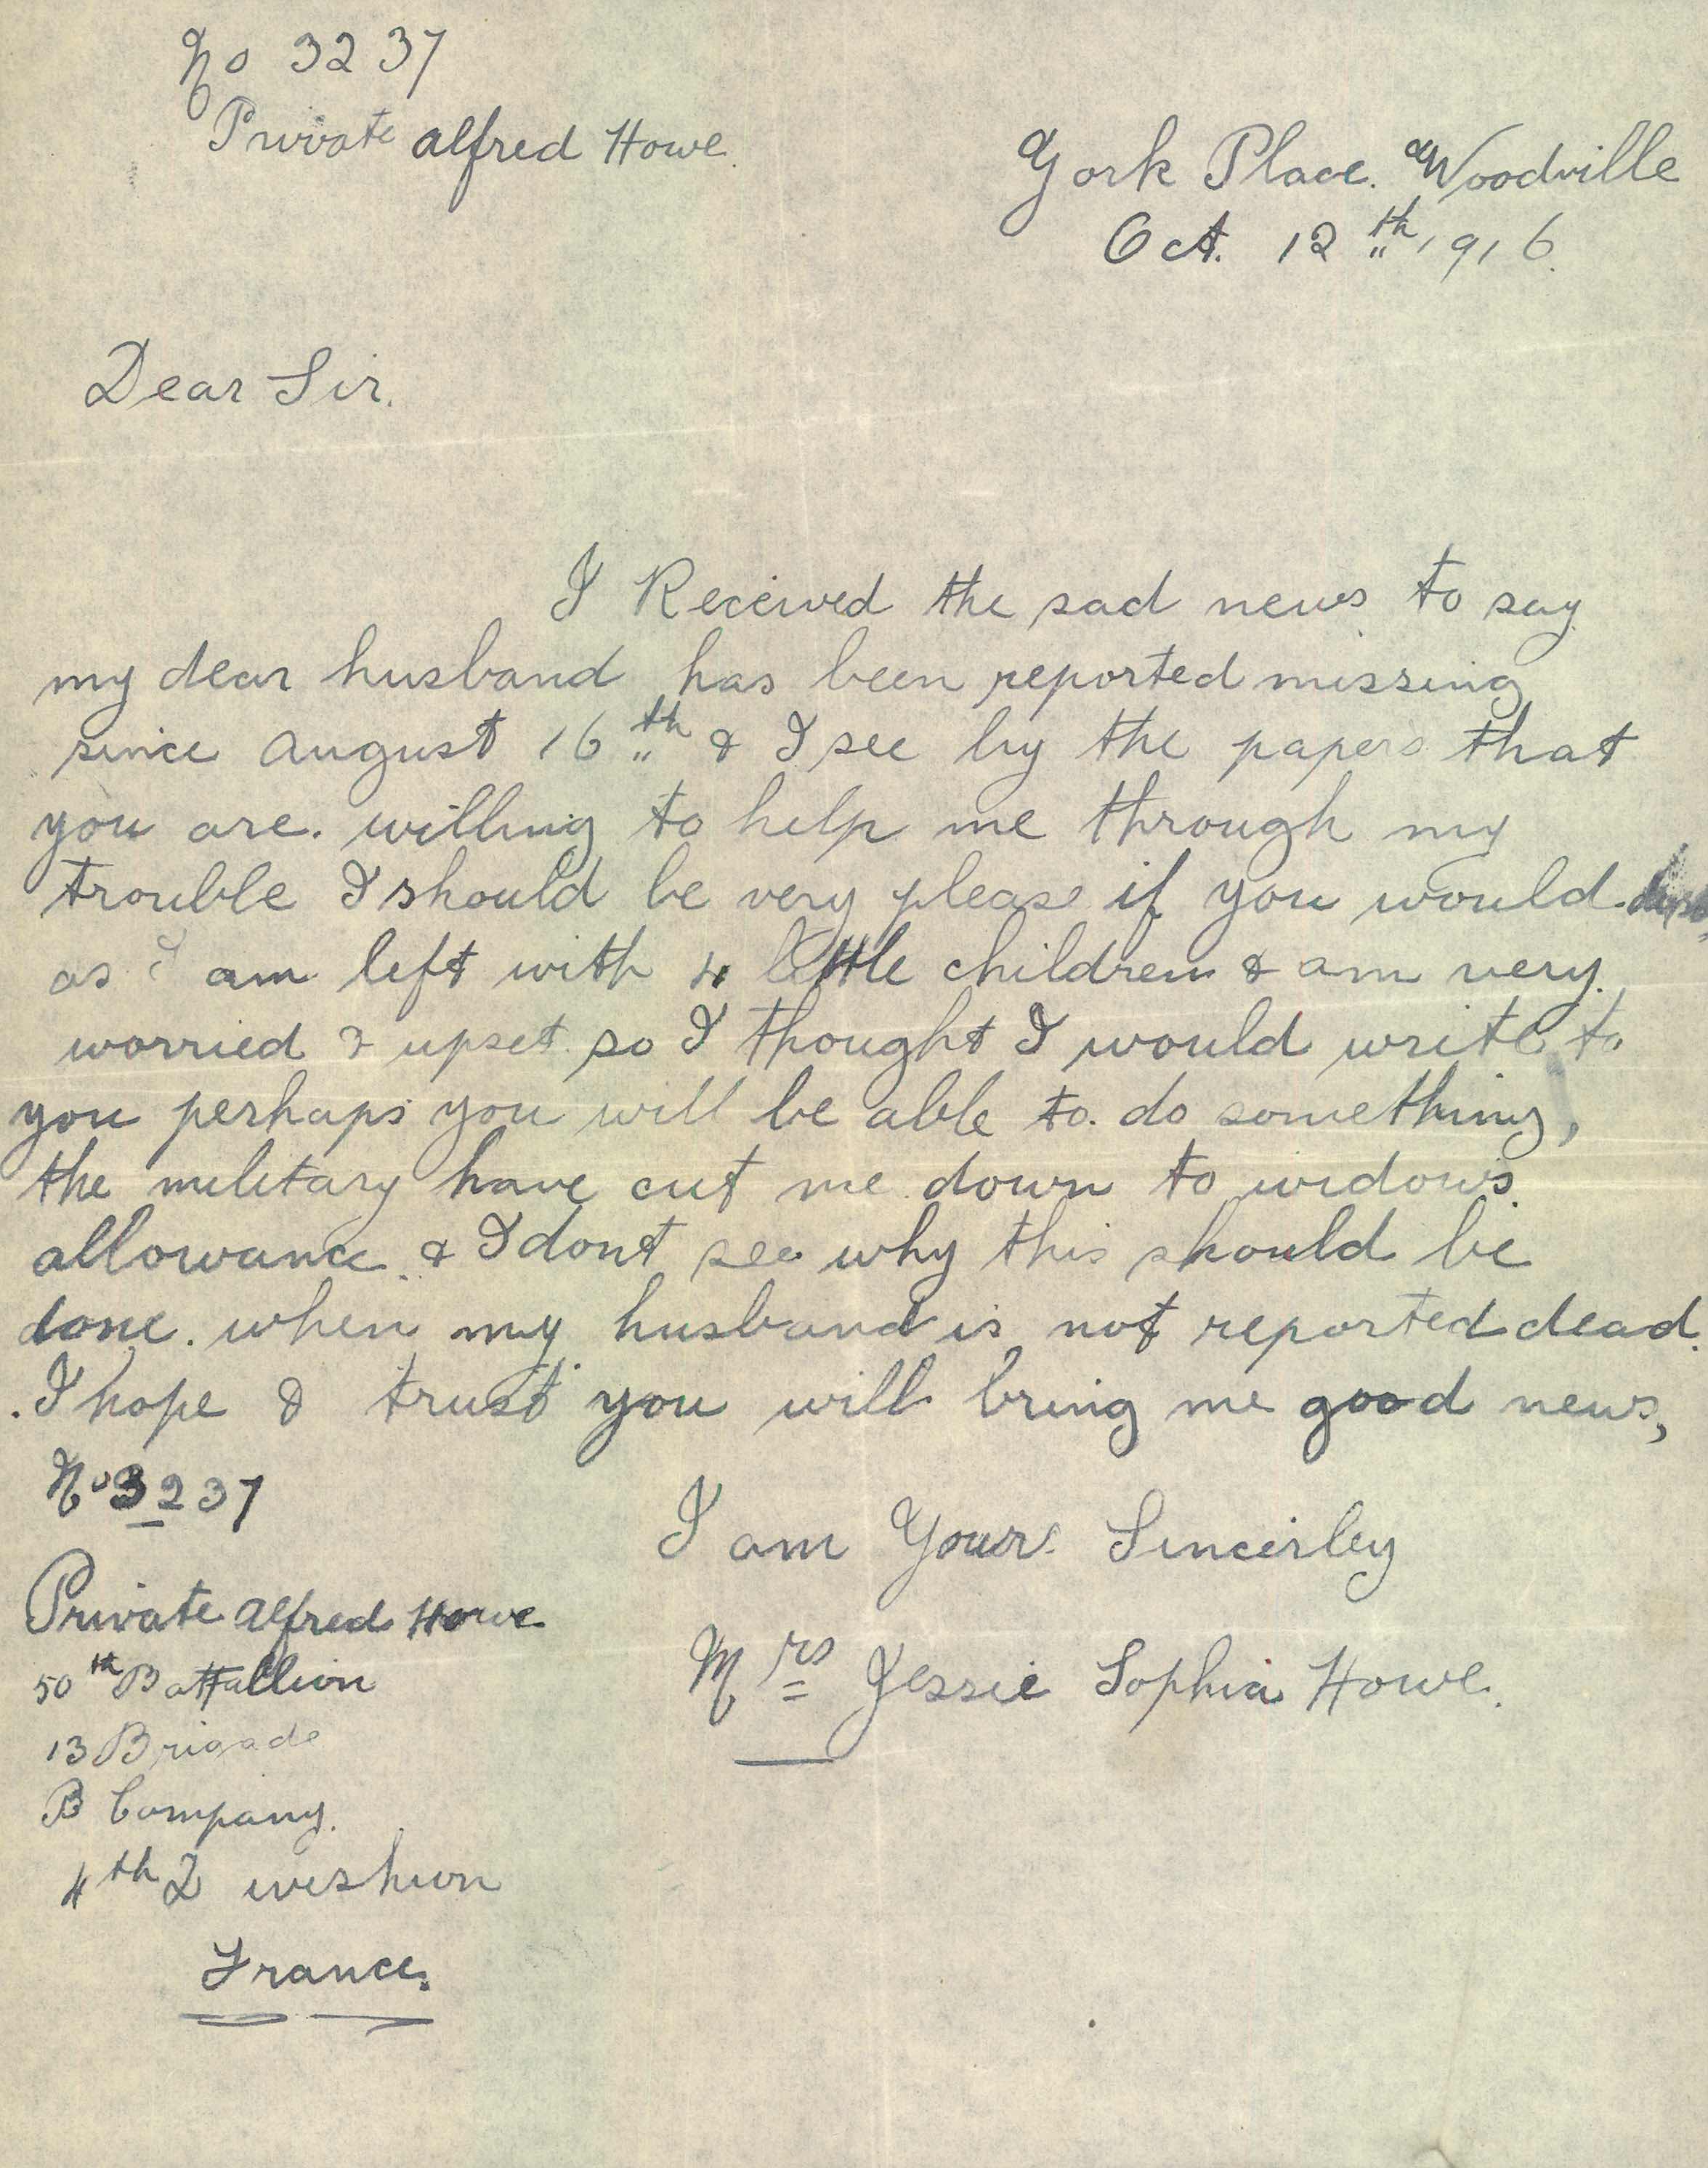 No 3237
Private alfred Howe.
York Place. Woodville
Oct. 12th 1916.
Dear Sir.
I Received the sad news to say
my dear husband has been reported missing
since august 16th & I see by the papers that
you are. willing to help me through my
trouble I should be very please if you would
as I am left with 4 little children & am very.
worried & upset so I thought I would write to
you perhaps you will be able to. do something,
the military have cut me down to widows
allowance. & I dont see why this should be
done. when my husband is not reported dead.
. I hope & trust you will bring me good news,
No 3237
I am Yours Sincerley
Private alfred Howe
Mrs Jessie Sophia Howe.
50th Battallion
13 Brigade
B Company.
4th Diveshion
France.